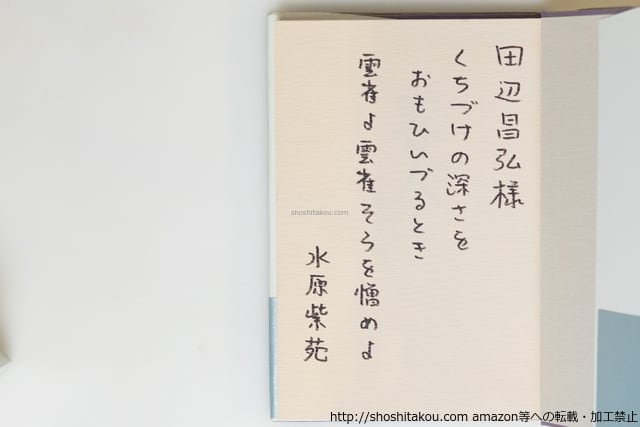 田辺昌弘様
くちづけの深さを
おもひいづるとき
雲雀よ雲雀そらを憎めよ
水原紫苑
shoshitakou.com
http://shoshitakou.com amazon等への転載・加工禁止